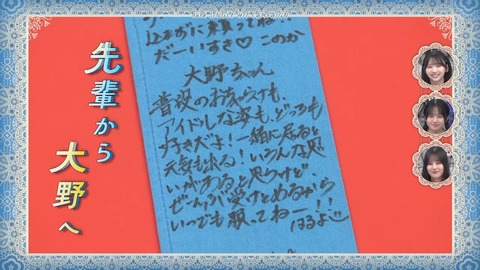 先輩から
大野へ
止まずに
だーいすき♡ このか
大野ちゃん
普段のおちゃらけも、
アイドルな姿も、どっちも
好きだよ！一緒に居ると
元気も出る！いろんな思
いがあると思うけど、
ぜーんぶ受けとめるから
いつでも頼ってねー！！
はるよ